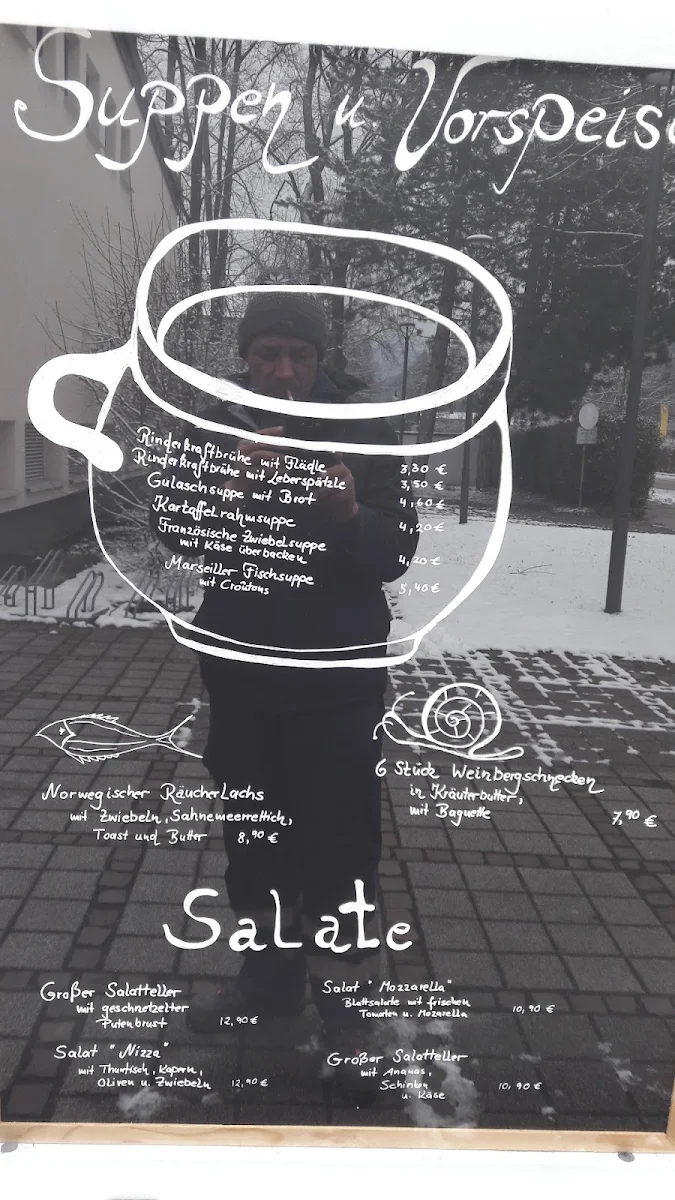 Suppen u Vorspeise
Rinderkraftbrühe mit Flädle 3,30 €
Rinderkraftbrühe mit Leberspätzle 3,50 €
Gulaschsuppe mit Brot 4,60 €
Kartoffelrahmsuppe 4,20 €
Französische Zwiebelsuppe
mit Käse überbacken 4,20 €
Marseiller Fischsuppe
mit Croûtons 5,40 €
Norwegischer Räucherlachs
mit Zwiebeln, Sahnemeerrettich,
Toast und Butter 8,90 €
6 Stück Weinbergschnecken
in Kräuterbutter,
mit Baguette 7,90 €
Salate
Großer Salatteller
mit geschnetzelter
Putenbrust 12,90 €
Salat "Mozzarella"
Blattsalate mit frischen
Tomaten u. Mozarella 10,90 €
Salat "Nizza"
mit Thunfisch, Kapern,
Oliven u. Zwiebeln 12,90 €
Großer Salatteller
mit Ananas,
Schinken
u. Käse 10,90 €